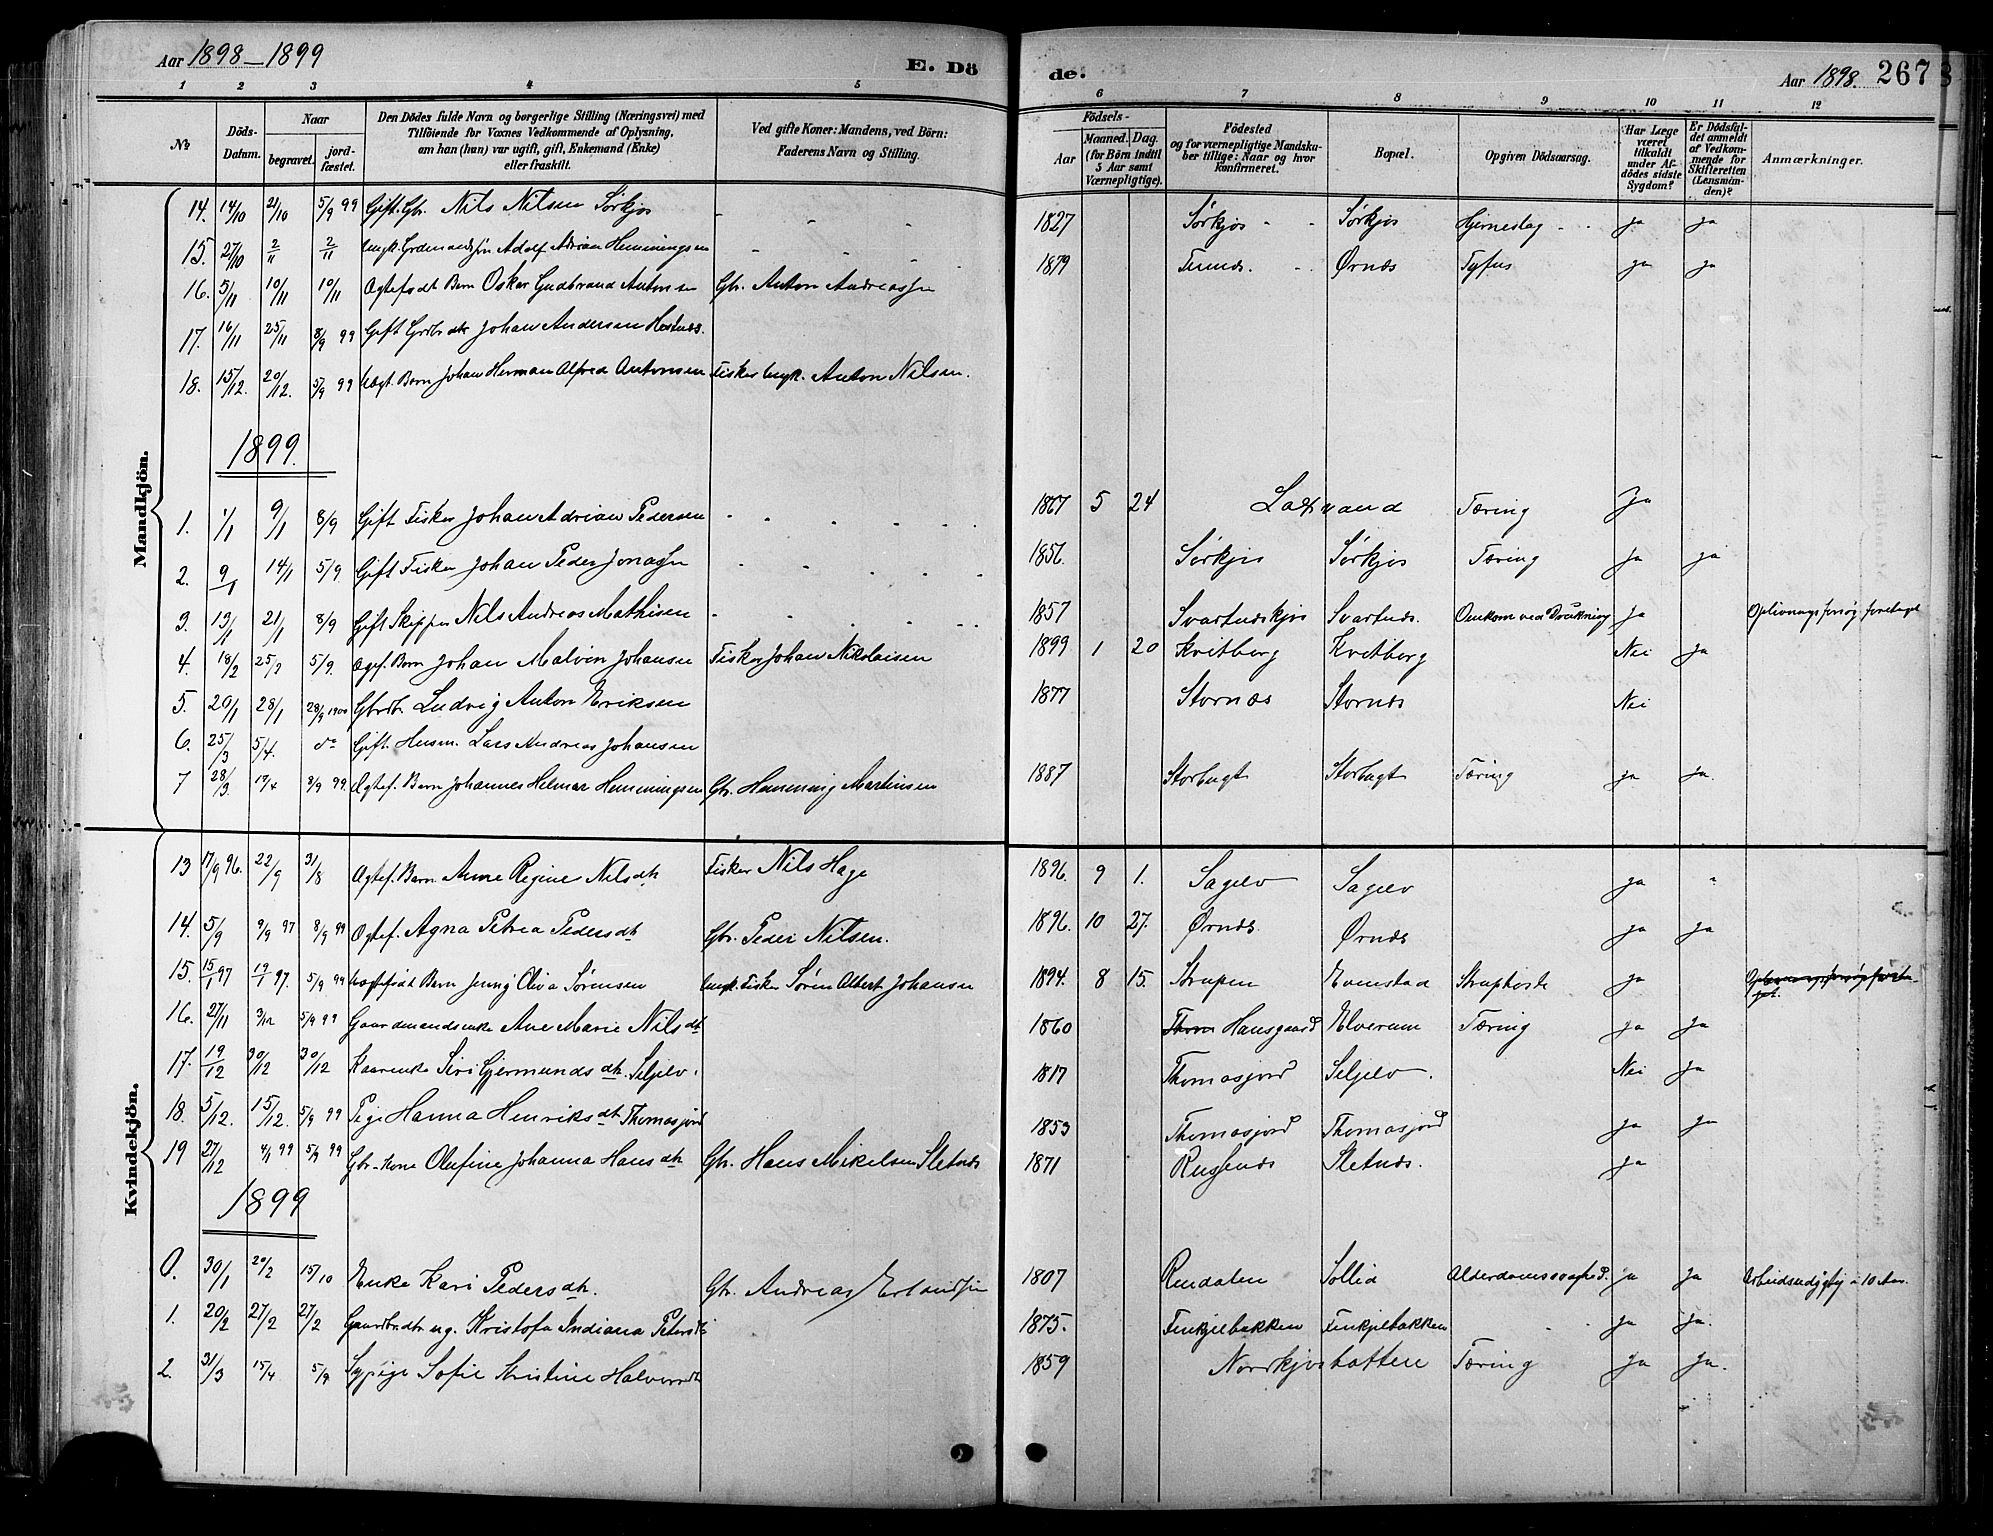 Aar 1898-1899
E. Dö de.
Aar 1898. 267
1 2 3 4 5 6 7 8 9 10 11 12
No
Döds-Datum.
Naar
begravet.
jord-fæstet.
Den Dödes fulde Navn og borgerlige Stilling (Næringsvei) med
Tilföiende for Voxnes Vedkommende af Oplysning,
om han (hun) var ugift, gift, Enkemand (Enke)
eller fraskilt.
Ved gifte Koner: Mandens, ved Börn:
Faderens Navn og Stilling.
Födsels-
Aar
Maaned. Dag.
(for Börn indtil
5 Aar samt
Værnepligtige).
Födested
og for værnepligtige Mandska-
ber tillige: Naar og hvor
konfirmeret.
Bopæl.
Opgiven Dödsaarsag.
Har Læge
været
tilkaldt
under Af-
dödes sidste
Sygdom?
Er Dödsfal-
det anmeldt
af Vedkom-
mende for
Skifteretten
(Lensman-
den)?
Anmærkninger.
Mandkjön.
14. 14/10 21/10 5/9 99 Gift. Gbr. Nils Nilsen Sørkjos 1827 Sørkjos Sørkjos Hjerneslag ja ja
15. 27/10 2/11 2/11 Ungk. Adolf Adrian Hemmingsen 1879 Ørnæs Tyfus ja ja
16. 5/11 10/11 10/11 Ægtefødt Barn Oskar Gudbrand Antonsen Gbr. Anton Andreassen
17. 16/11 25/11 8/9 99 Gift Grdbr. Johan Andersen
18. 15/12. 20/12. 5/9 99 Uægt. Barn Johan Herman Alfred Antonsen Fisker Ungk. Anton Nilsen.
1899.
1. 1/1 9/1 8/9 Gift Fisker Johan Adrian Pedersen 1867 5 24 Laxvand Tæring Ja
2. 9/1 14/1 5/9 Gift Fisker Johan Peder Jonassen 1856. Sørkjos Sørkjos Tæring ja ja
3. 13/1 21/1 8/9 Gift Skipper Nils Andreas Mathisen 1857 Svartnæskjos Svartnæs. Omkom ved Drukning ja Oplivningsforsøg foretaget
4. 18/2 25/2 5/9. Ægtef. Barn Johan Malvin Johansen Fisker Johan Nikolaisen 1899 1 20 Kvitberg Kvitberg Nei ja
5. 20/1 28/1 28/9 1900 Gbrdr. Ludvig Anton Eriksen 1877 Stornæs Stornæs Nei
6. 25/3 5/4. do Gift. Husm. Lars Andreas Johansen
7 28/3 17/4 8/9 99. Ægtef. Barn Johannes Helmar Hemmingsen Gbr. Hemming Martinsen 1887 Storbugt Storbugt Tæring ja ja
Kvindekjön.
13 17/9 96. 22/9 31/8 Ægtef. Barn Anne Regine Nilsdtr Fisker Nils Hage 1896. 9 1. Sagelv Sagelv ja "
14. 5/9 9/9 97 8/9 99 Ægtef. Agna Petrea Pedersdtr Gbr. Peder Nilsen. 1896. 10 27. Ørnæs. Ørnæs ja ja
15. 15/1 97 19/1 97. 5/9 99 Uægtefødt Barn Jenny Oliva Sørensen Ungk. Fisker Søren Albert Johansen 1894. 8 15. Strupen Evenstad Struphoste ja
16. 27/11 3/12 5/9 99 Gaardmandsenke Ane Marie Nilsdtr 1860 Hansgaard Elverum Tæring ja ja
17. 19/12 30/12 30/12 Kaarenke Siri Gjermundsdtr. Seljelv. 1817 Thomasjord Seljelv. Nei ja
18. 5/12. 15/12. 5/9 99 Pige Hanna Henriksdtr Thomasjord 1853 Thomasjord Thomasjord ja ja
19 27/12 4/1 99 5/9 99 Gbr.-kone Olufine Johanna Hansdtr Gbr. Hans Mikelsen Sletnæs 1871 Russenæs Sletnæs. ja
1899
0. 30/1 20/2 15/10 Enke Kari Pedersdtr. Gbr. Andreas Erlandsen 1807 Rendalen Sollid Alderdomssvaghed. ja ja Arbeidsudygtig i 10 Aar.
1. 20/2 27/2 27/2 Gaardbr.dtr. ug. Kristofa Indiana Petersdtr 1875. Finkjelbakken Finkjelbakken ja ja.
2. 31/3 15/4 5/9 Sypige Sofie Kristine Halvorsdtr 1859 Nordkjosbotten Tæring ja ja.